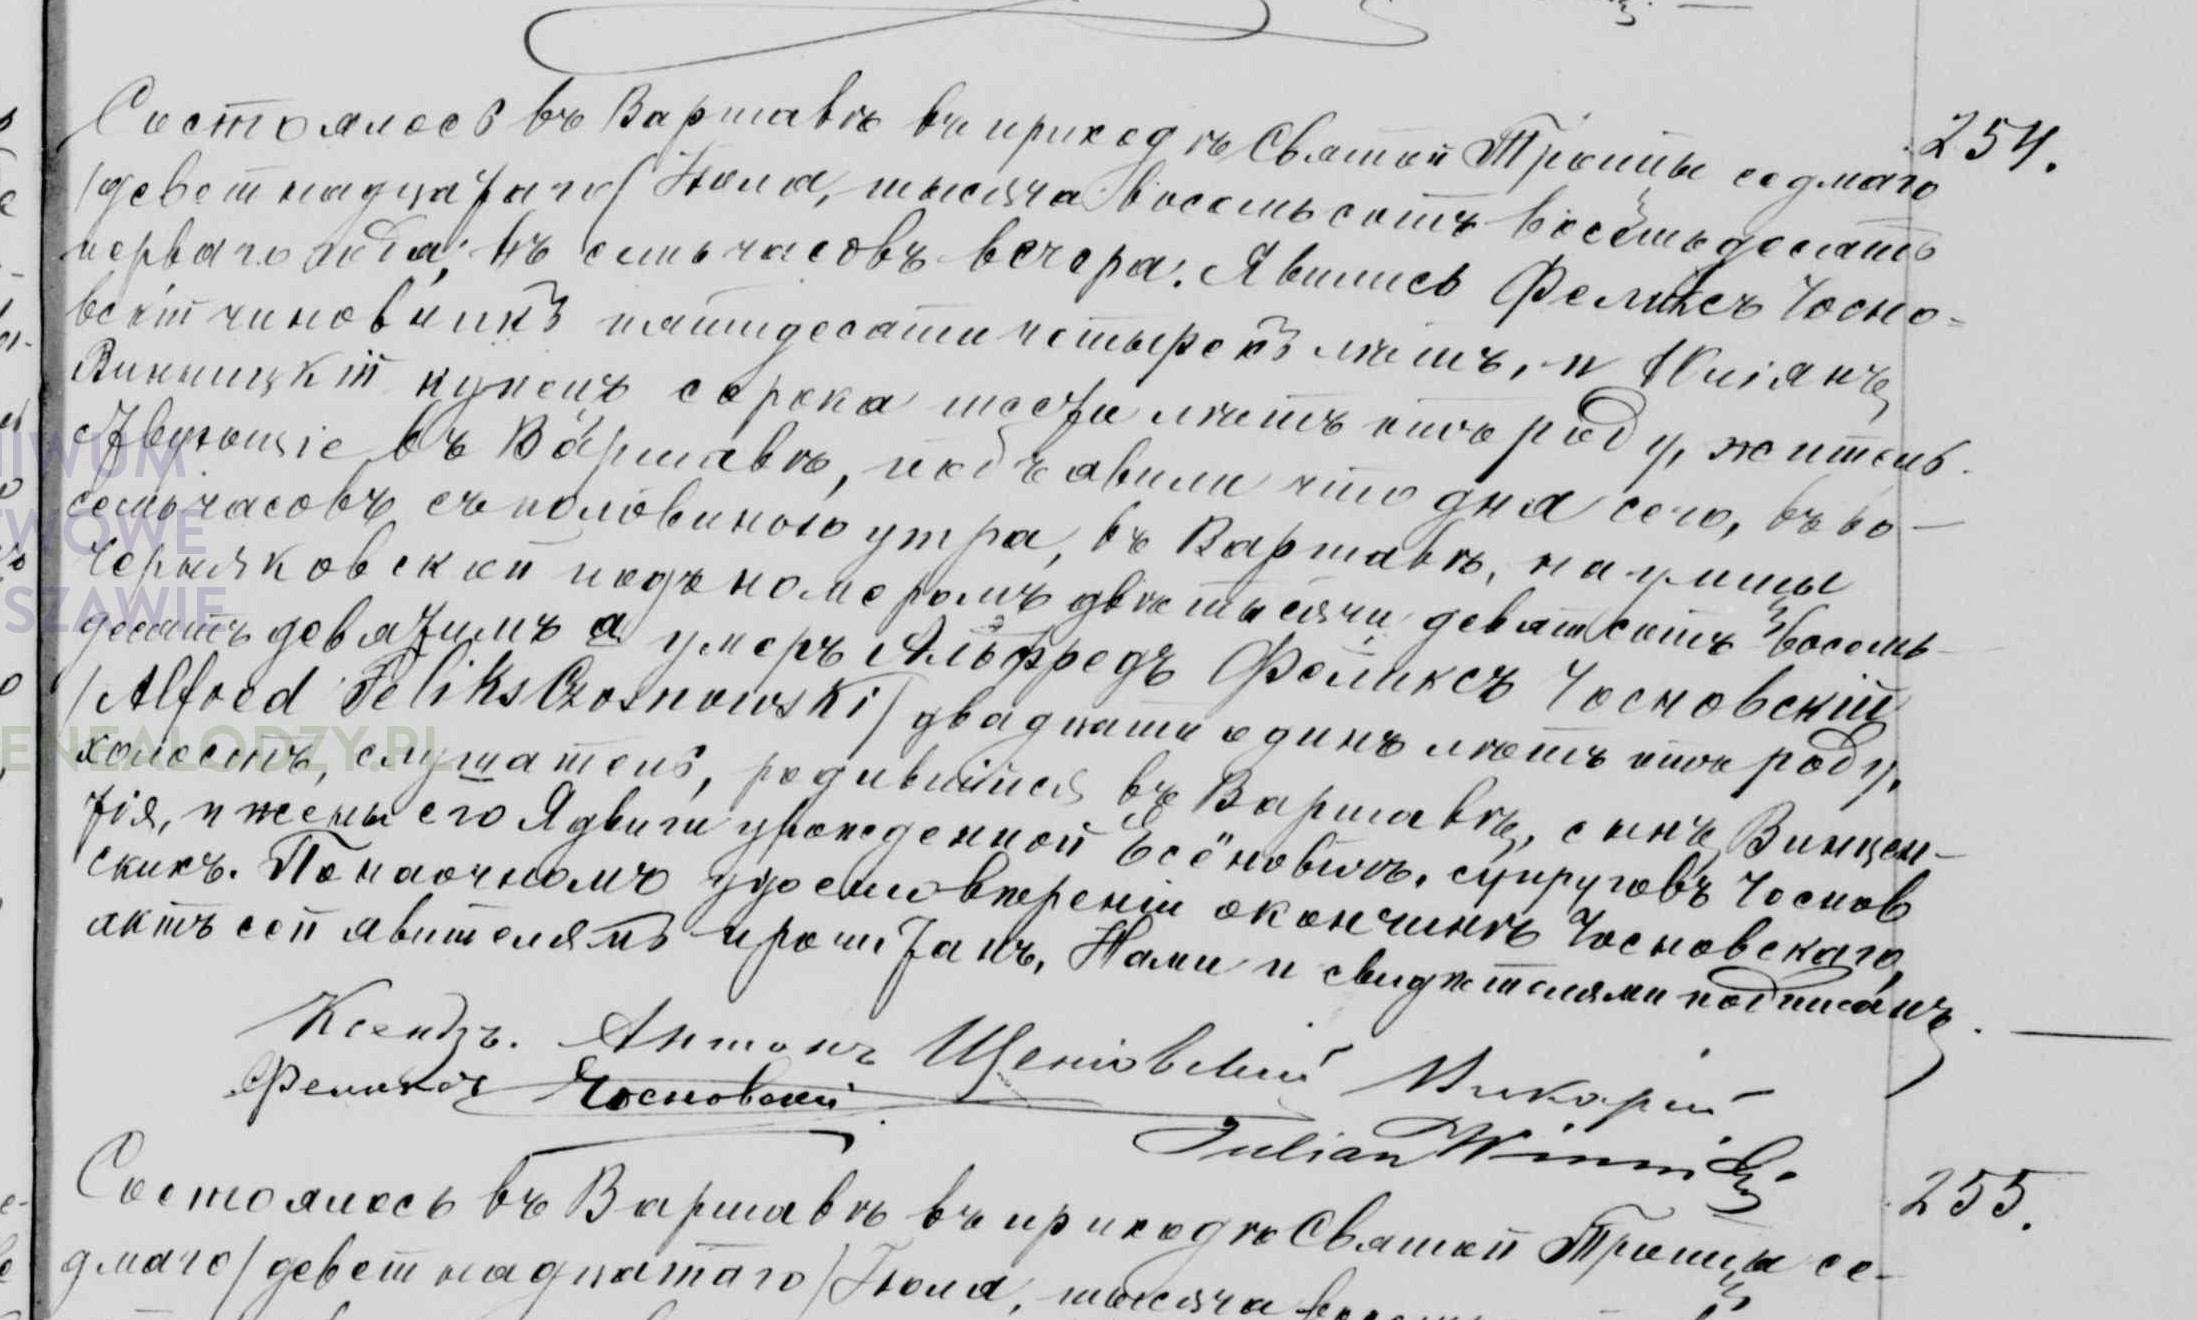 254.
Состоялось въ Варшавѣ въ приходѣ Святой Троицы седмаго
/девятнадцатаго/ Іюля, тысяча восемьсотъ восемьдесятъ
перваго года, въ семь часовъ вечера. Явились Феликсъ Чосно=
вскій чиновникъ пятидесяти четырехъ лѣтъ, и Юліянъ
Винницкій купецъ сорока шести лѣтъ отъ роду, житель-
ствующіе въ Варшавѣ, и объявили что дня сего, въ во-
семь часовъ съ половиною утра, въ Варшавѣ, на улицы
Черняковской подъ номеромъ двѣ тысячи девятьсотъ восемь-
десятъ девятымъ а умеръ Альфредъ Феликсъ Чосновскій
/Alfred Feliks Czosnowski/ двадцати одинъ лѣтъ отъ роду,
холостъ, слушатель, родившійся въ Варшавѣ, сынъ Винцен-
тія, и жены его Ядвиги урожденной Есёновыхъ, супруговъ Чоснов
скихъ. По наочномъ удостовѣреніи о кончинѣ Чосновскаго,
актъ сей явителямъ прочитанъ, Нами и свидѣтелями подписанъ.
Ксендзъ. Антонъ Викарій
Феликсъ Чосновскій
Julian Winnicki
255.
Состоялось въ Варшавѣ въ приходѣ Святой Троицы се-
дмаго /девятнадцатаго/ Іюля, тысяча
ENEALODZY.PL